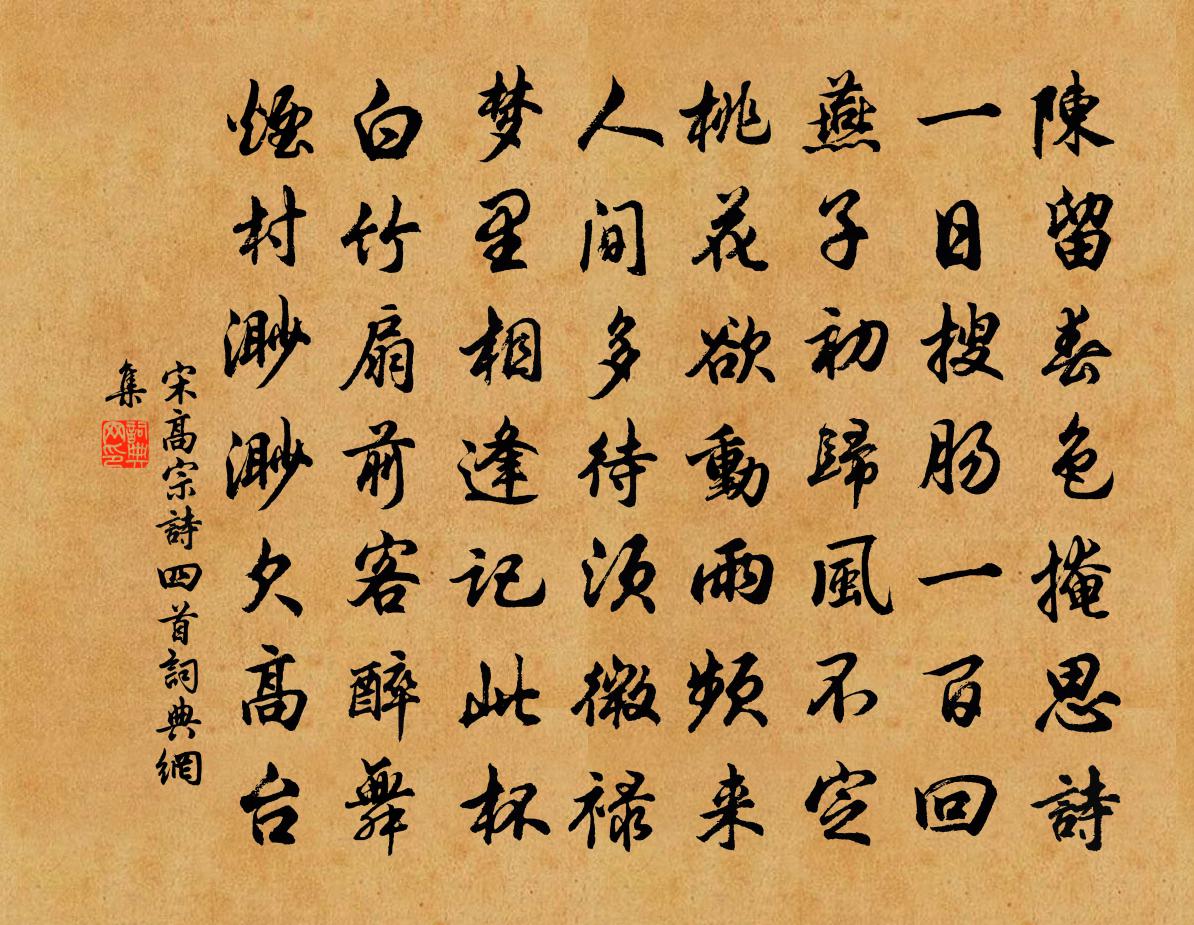 陳留春色掩思詩
一日搜腸一百回
燕子初歸風不定
桃花欲動雨頻来
人间多待須微禄
梦里相逢記此杯
白竹扇前客醉舞
煙村渺渺欠高台
宋高宗詩四首詞典網
集
詞典
网印